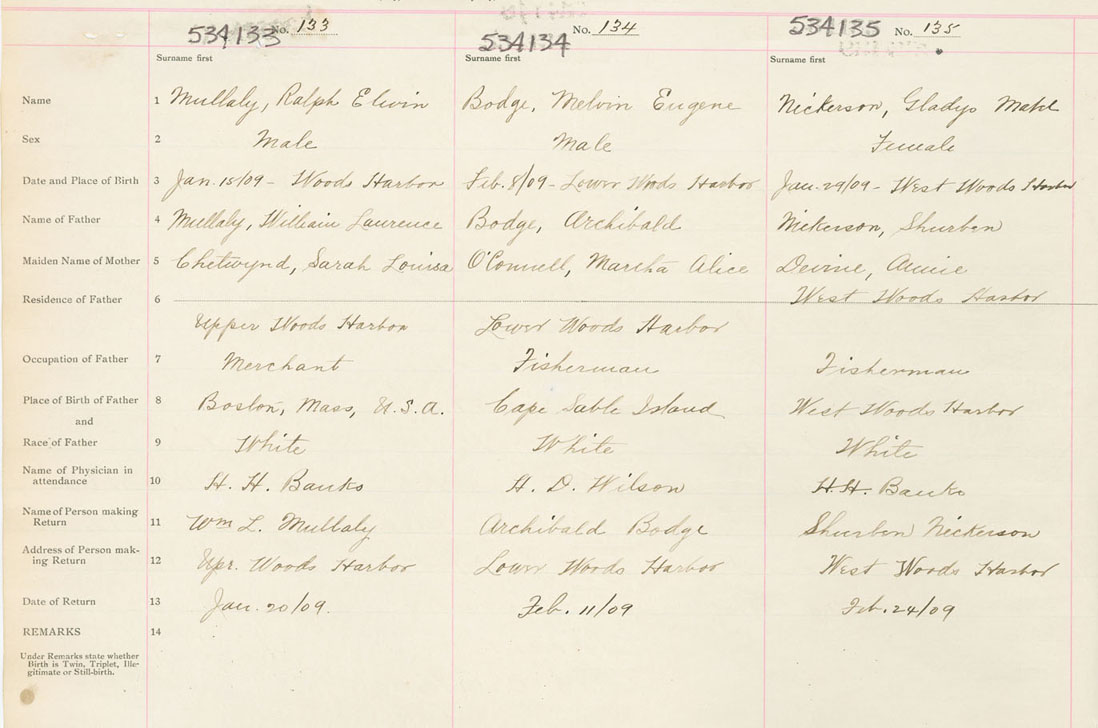 534133 No. 133 534134 No. 134 534135 No. 135
Surname first Surname first Surname first
Name 1 Mullaly, Ralph Elwin Bodge, Melvin Eugene Nickerson, Gladys Mabl
Sex 2 Male Male Female
Date and Place of Birth 3 Jan. 15/09 - Woods Harbor Feb. 8/09 - Lower Woods Harbor Jan. 29/09 - West Woods Harbor
Name of Father 4 Mullaly, William Laurence Bodge, Archibald Nickerson, Shurben
Maiden Name of Mother 5 Chetwynd, Sarah Louisa O'Connell, Martha Alice Devine, Annie
Residence of Father 6 West Woods Harbor
Upper Woods Harbor Lower Woods Harbor
Occupation of Father 7 Merchant Fisherman Fisherman
Place of Birth of Father 8 Boston, Mass, U.S.A. Cape Sable Island West Woods Harbor
and
Race of Father 9 White White White
Name of Physician in
attendance 10 H. H. Banks H. D. Wilson H. H. Banks
Name of Person making
Return 11 Wm L. Mullaly Archibald Bodge Shurben Nickerson
Address of Person mak-
ing Return 12 Upr. Woods Harbor Lower Woods Harbor West Woods Harbor
Date of Return 13 Jan. 20/09. Feb. 11/09 Feb. 24/09
REMARKS 14
Under Remarks state whether
Birth is Twin, Triplet, Ille-
gitimate or Still-birth.